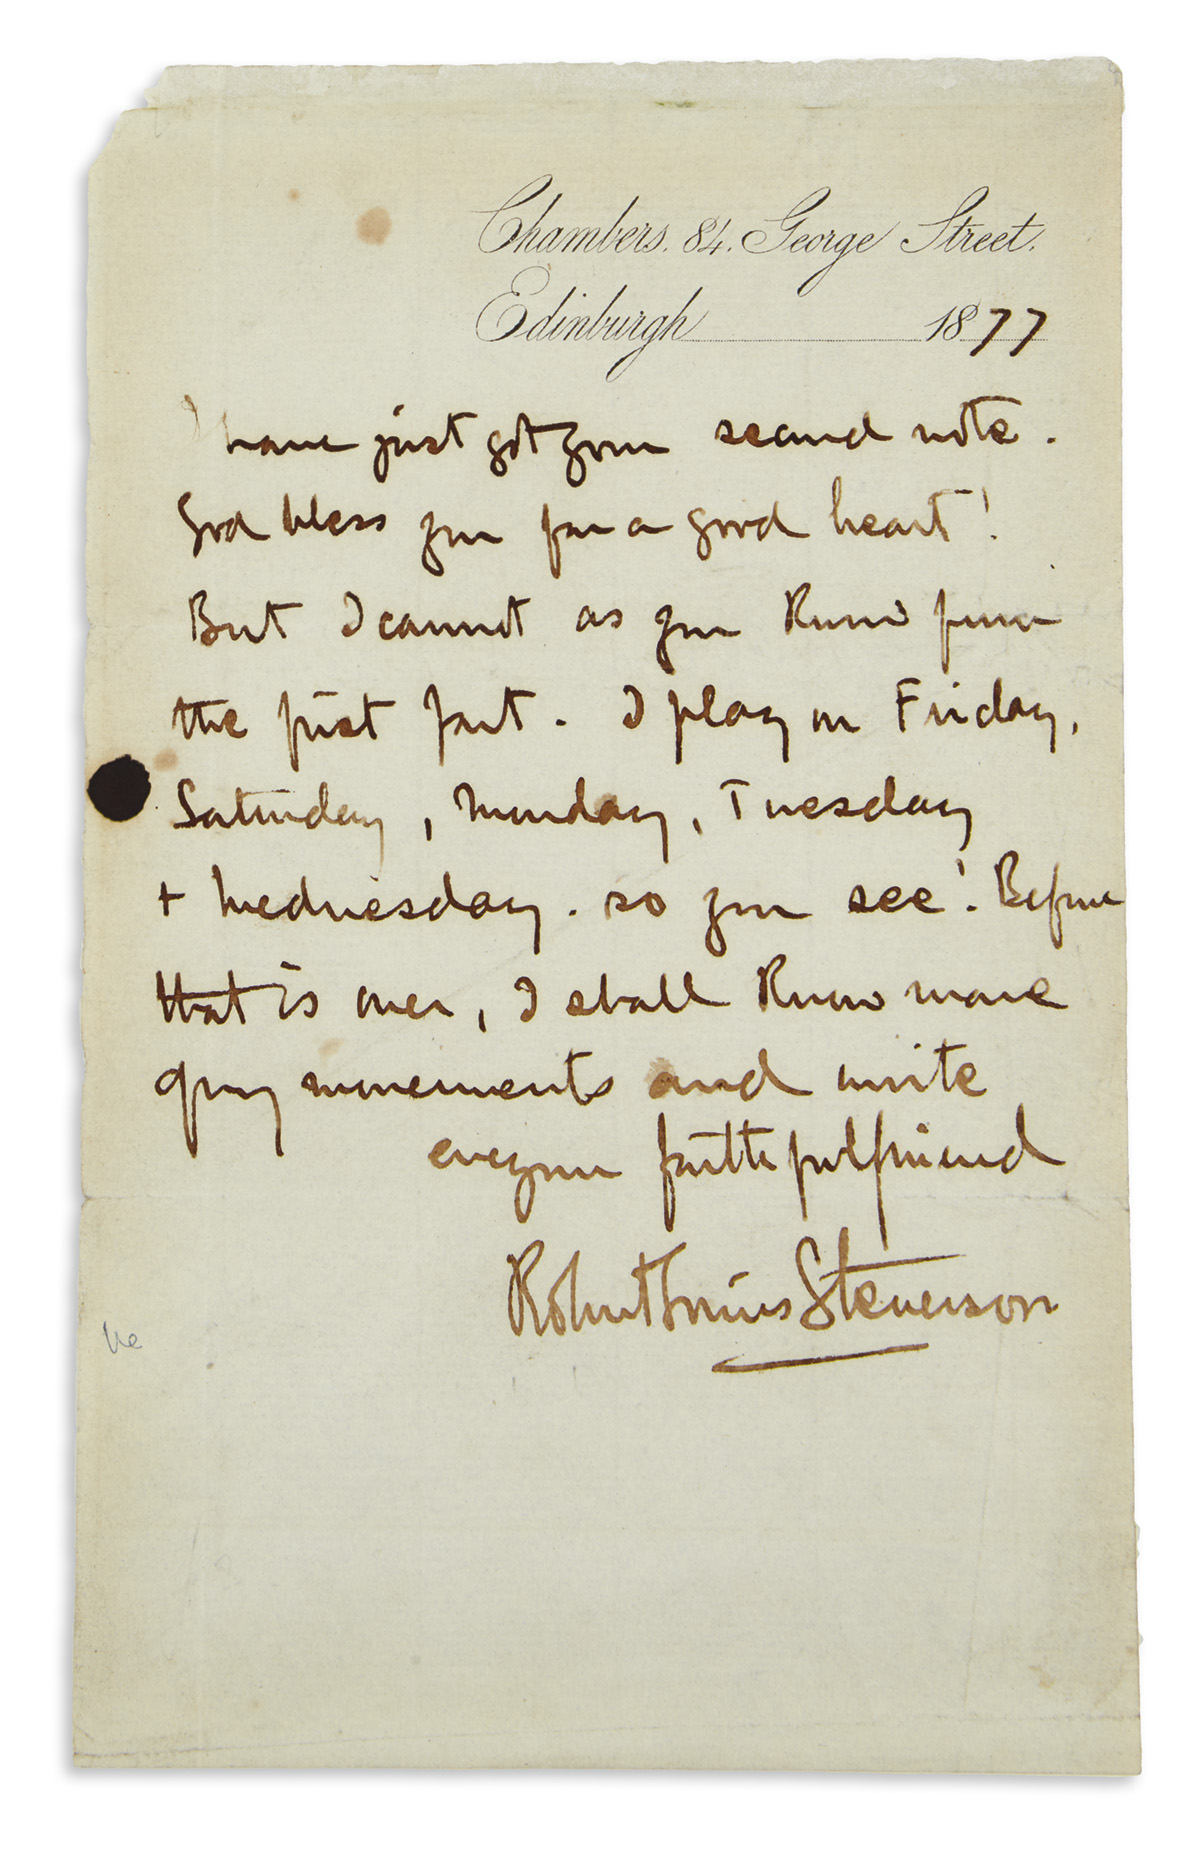 Chambers. 84. George Street.
Edinburgh 1877
I have just got your second note.
God bless you for a good heart!
But I cannot as you know from
the first part. I play on Friday,
Saturday, Monday, Tuesday
+ Wednesday. so you see! Before
that is over, I shall know more
of my movements and write
ever your faithful friend
Robert Louis Stevenson